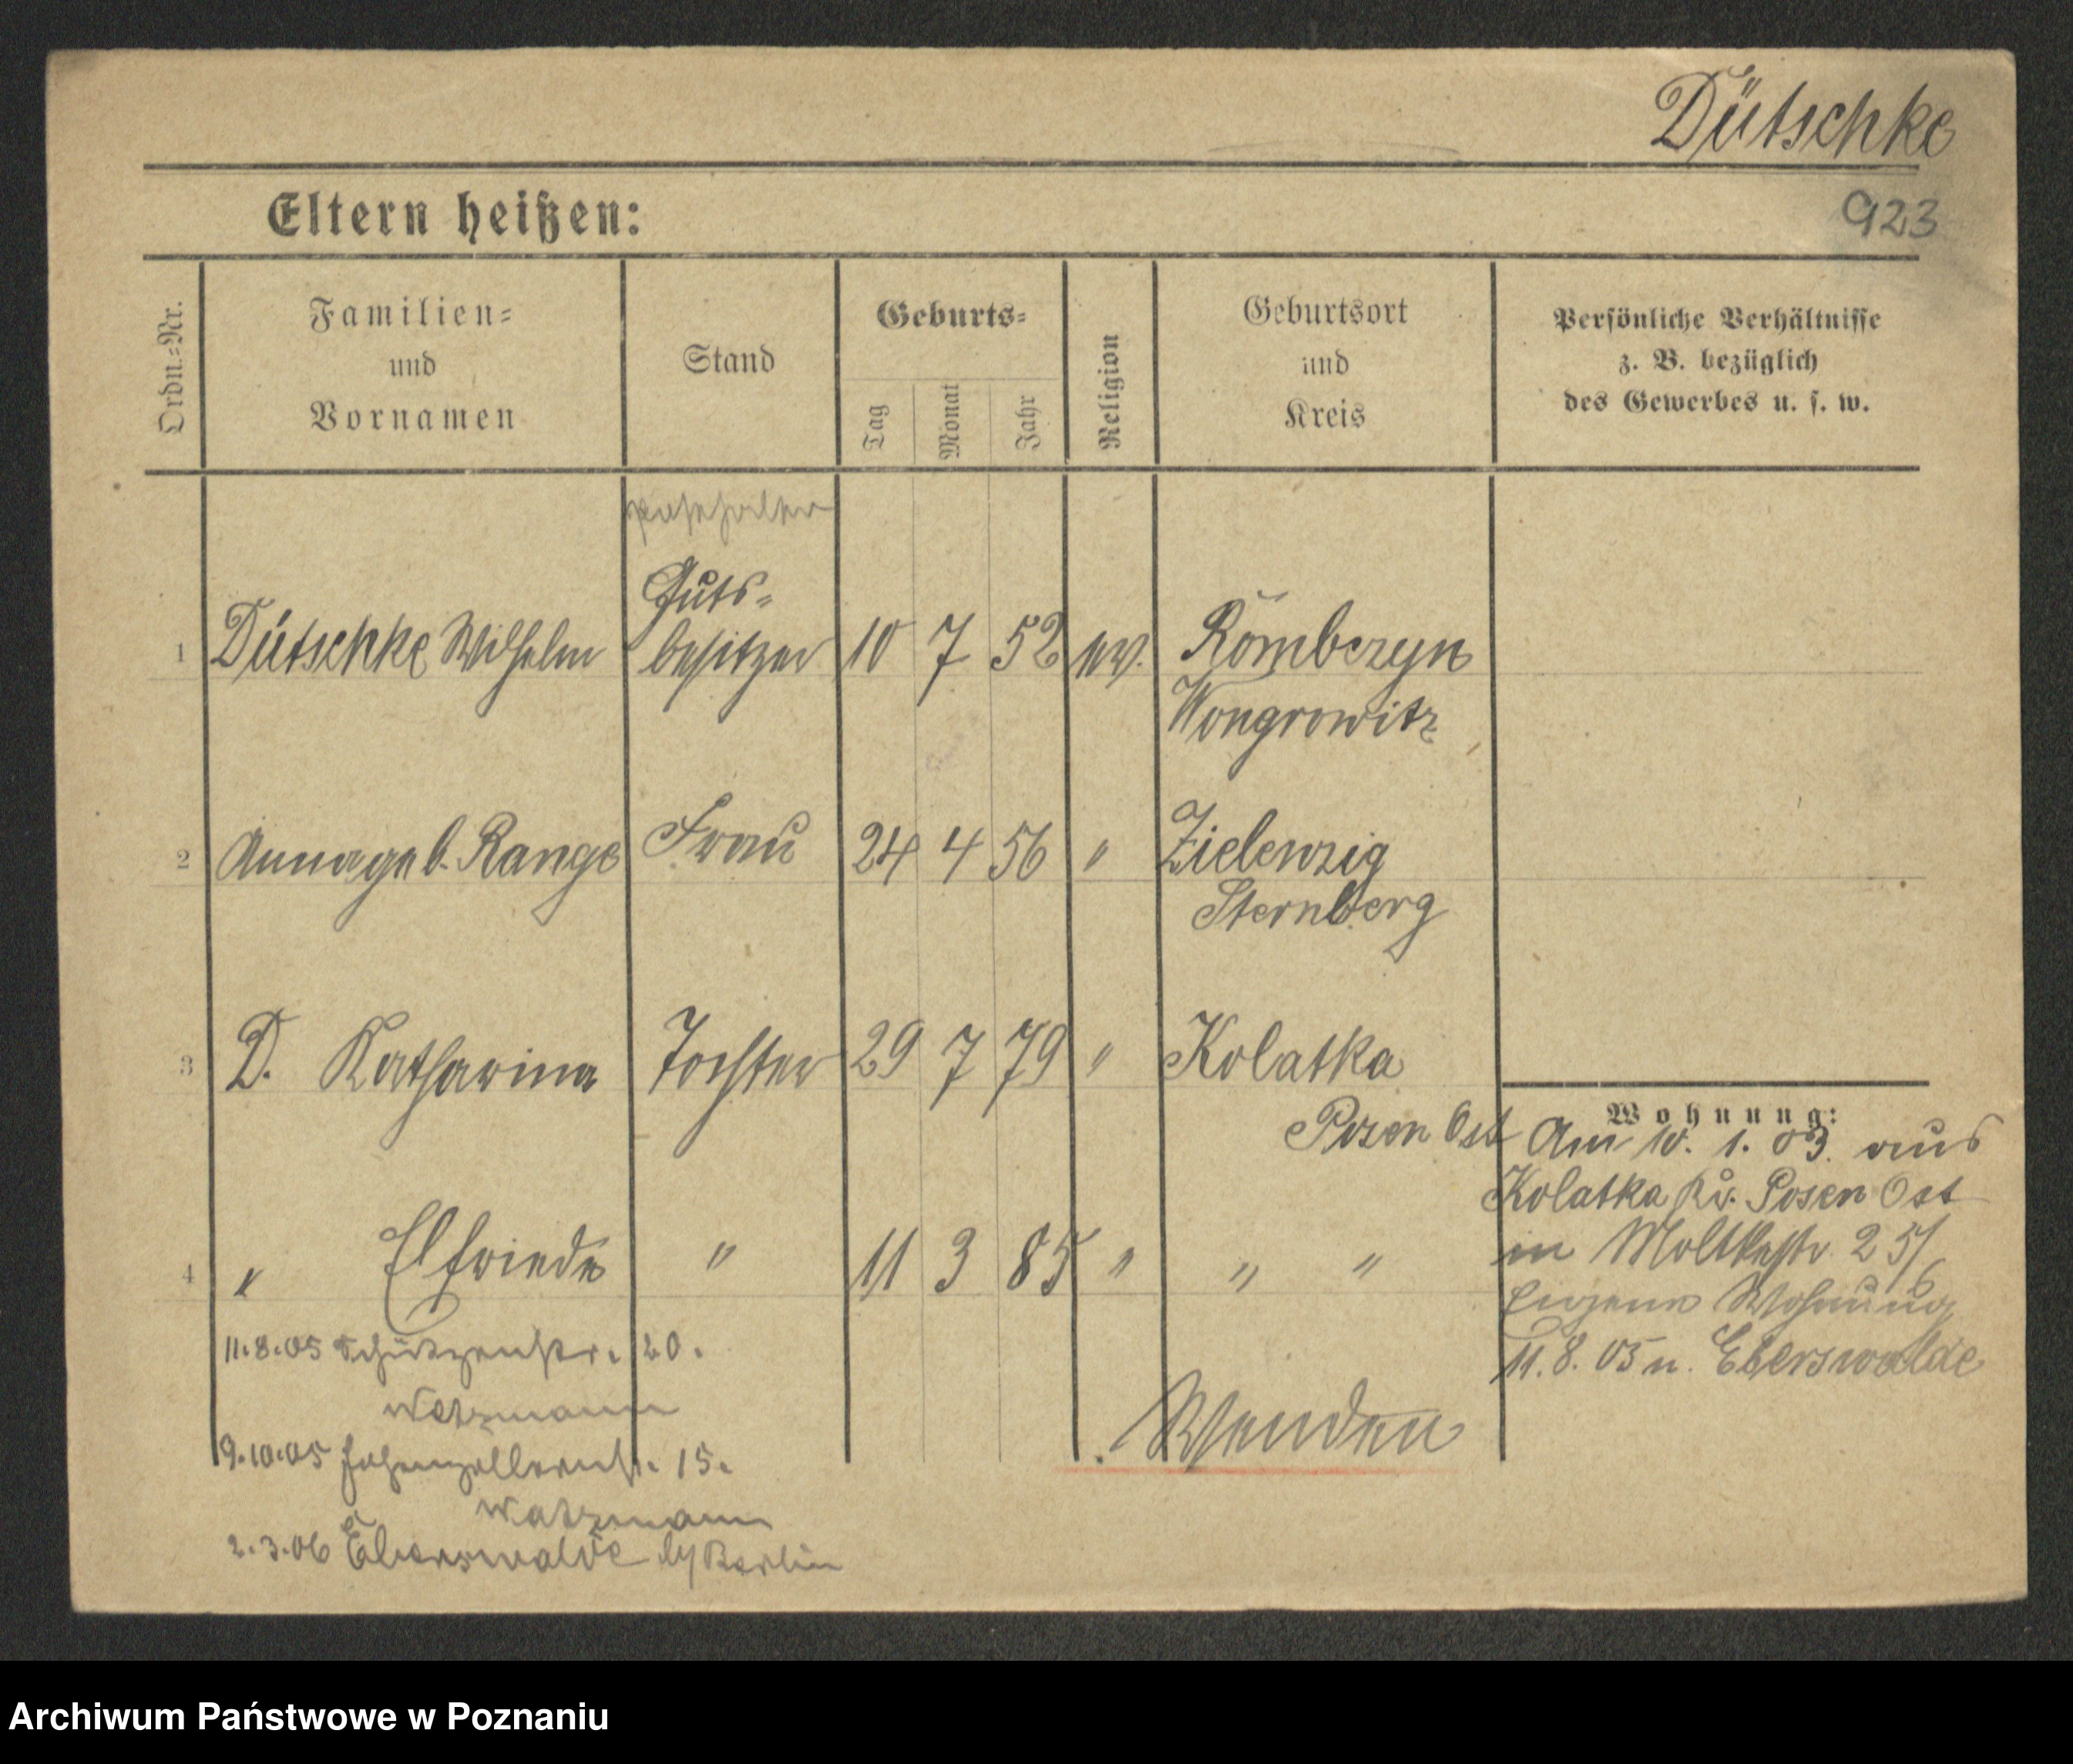 Dütschke
923
Eltern heißen:
Ordn.-Nr.
Familien-
und
Vornamen
Stand
Geburts-
Tag
Monat
Jahr
Religion
Geburtsort
und
Kreis
Persönliche Verhältnisse
z. B. bezüglich
des Gewerbes u. s. w.
Guts-
1 Dütschke Wilhelm besitzer 10 7 52 ev. Rombczyn
Wongrowitz
2 Anna geb. Range Frau 24 4 56 " Zielenzig
Sternberg
3 D. Katharina Tochter 29 7 79 " Kolatka
Posen Ost
4 " Elfriede " 11 3 85 " " "
Wohnung:
Am 10. 1. 03. aus
Kolatka Kr. Posen Ost
in Moltkestr. 25/
Eigene Wohnung
11. 8. 05 n. Eberswalde
11.8.05 Schützenstr. 20.
Watzmann
9.10.05 Hohenzollernstr. 15.
Watzmann
2.3.06 Eberswalde b/Berlin
Wenden
Archiwum Państwowe w Poznaniu